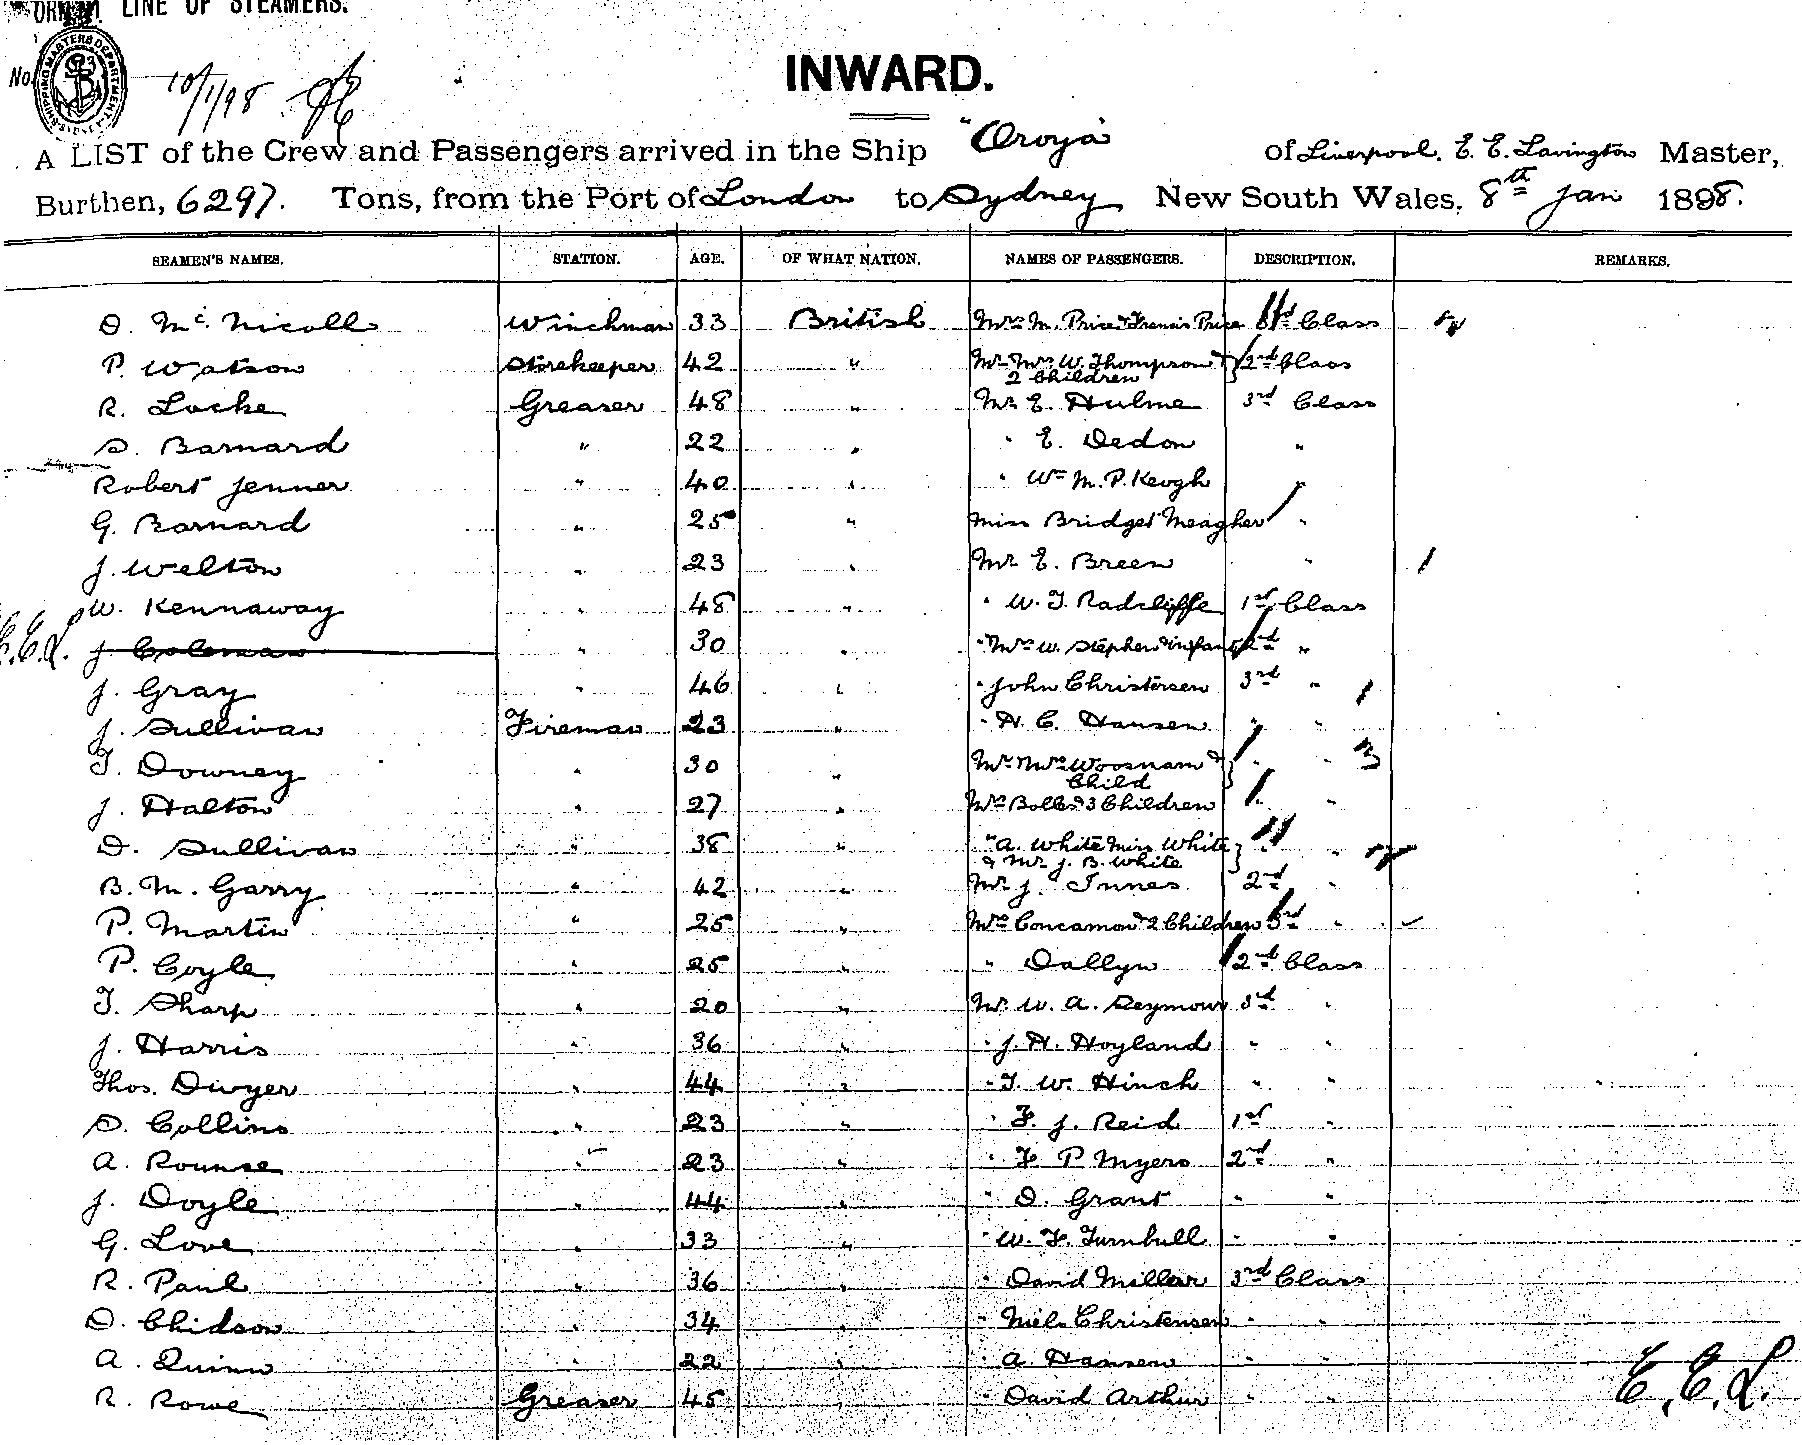 LINE OF STEAMERS.
No.
SHIPPING MASTERS DEPARTMENT SYDNEY
10/1/98
INWARD.
A LIST of the Crew and Passengers arrived in the Ship "Oroya" of Liverpool, E. E. Lavington Master,
Burthen, 6297. Tons, from the Port of London to Sydney New South Wales, 8th Jan 1898.
SEAMEN'S NAMES. STATION. AGE. OF WHAT NATION. NAMES OF PASSENGERS. DESCRIPTION. REMARKS.
D. Mc. Nicoll Winchman 33 British Mrs M. Price & Francis Price Class
P. Watson Storekeeper 42 " Mr Mrs W. Thompson & } 2nd Class
2 Children
R. Locke Greaser 48 " Mr E. Hulme 3rd Class
S. Barnard " 22 " " E. Dedon "
Robert Jenner " 40 " " Wm M. P. Keogh "
G. Barnard " 25 " Miss Bridget Meagher "
J. Welton " 23 " Mr E. Breen "
W. Kennaway " 48 " " W. J. Radcliffe 1st Class
E.E.L. J Coleman " 30 " " Mrs W. Stephen & infant 2nd "
J. Gray " 46 " " John Christensen 3rd "
J. Sullivan Fireman 23 " " H. C. Hansen " "
T. Downey " 30 " Mr Mrs Woosnam & } " "
Child
J. Halton " 27 " Mrs Bolls & 3 Children " "
D. Sullivan " 38 " " A. White Miss White } " "
& Mr J. B. White
B. M. Garry " 42 " Mr J. Innes 2nd "
P. Martin " 25 " Mrs Concamon & 2 Children 3rd "
P. Coyle " 25 " " Dallyn 2nd Class
T. Sharp " 20 " Mr W. A. Seymour 3rd "
J. Harris " 36 " " J. H. Hoyland " "
Thos. Dwyer " 44 " " T. W. Hinch " "
S. Collins " 23 " " F. J. Reid 1st "
A. Rounse " 23 " " F P Myers 2nd "
J. Doyle " 44 " " D. Grant " "
G. Love " 33 " " W. F. Turnbull " "
R. Paul " 36 " " David Millar 3rd Class
D. Chidson " 34 " " Niels Christensen " "
A. Quinn " 22 " " A Hansen " "
R. Rowe Greaser 45 " " David Arthur " "
E.E.L.